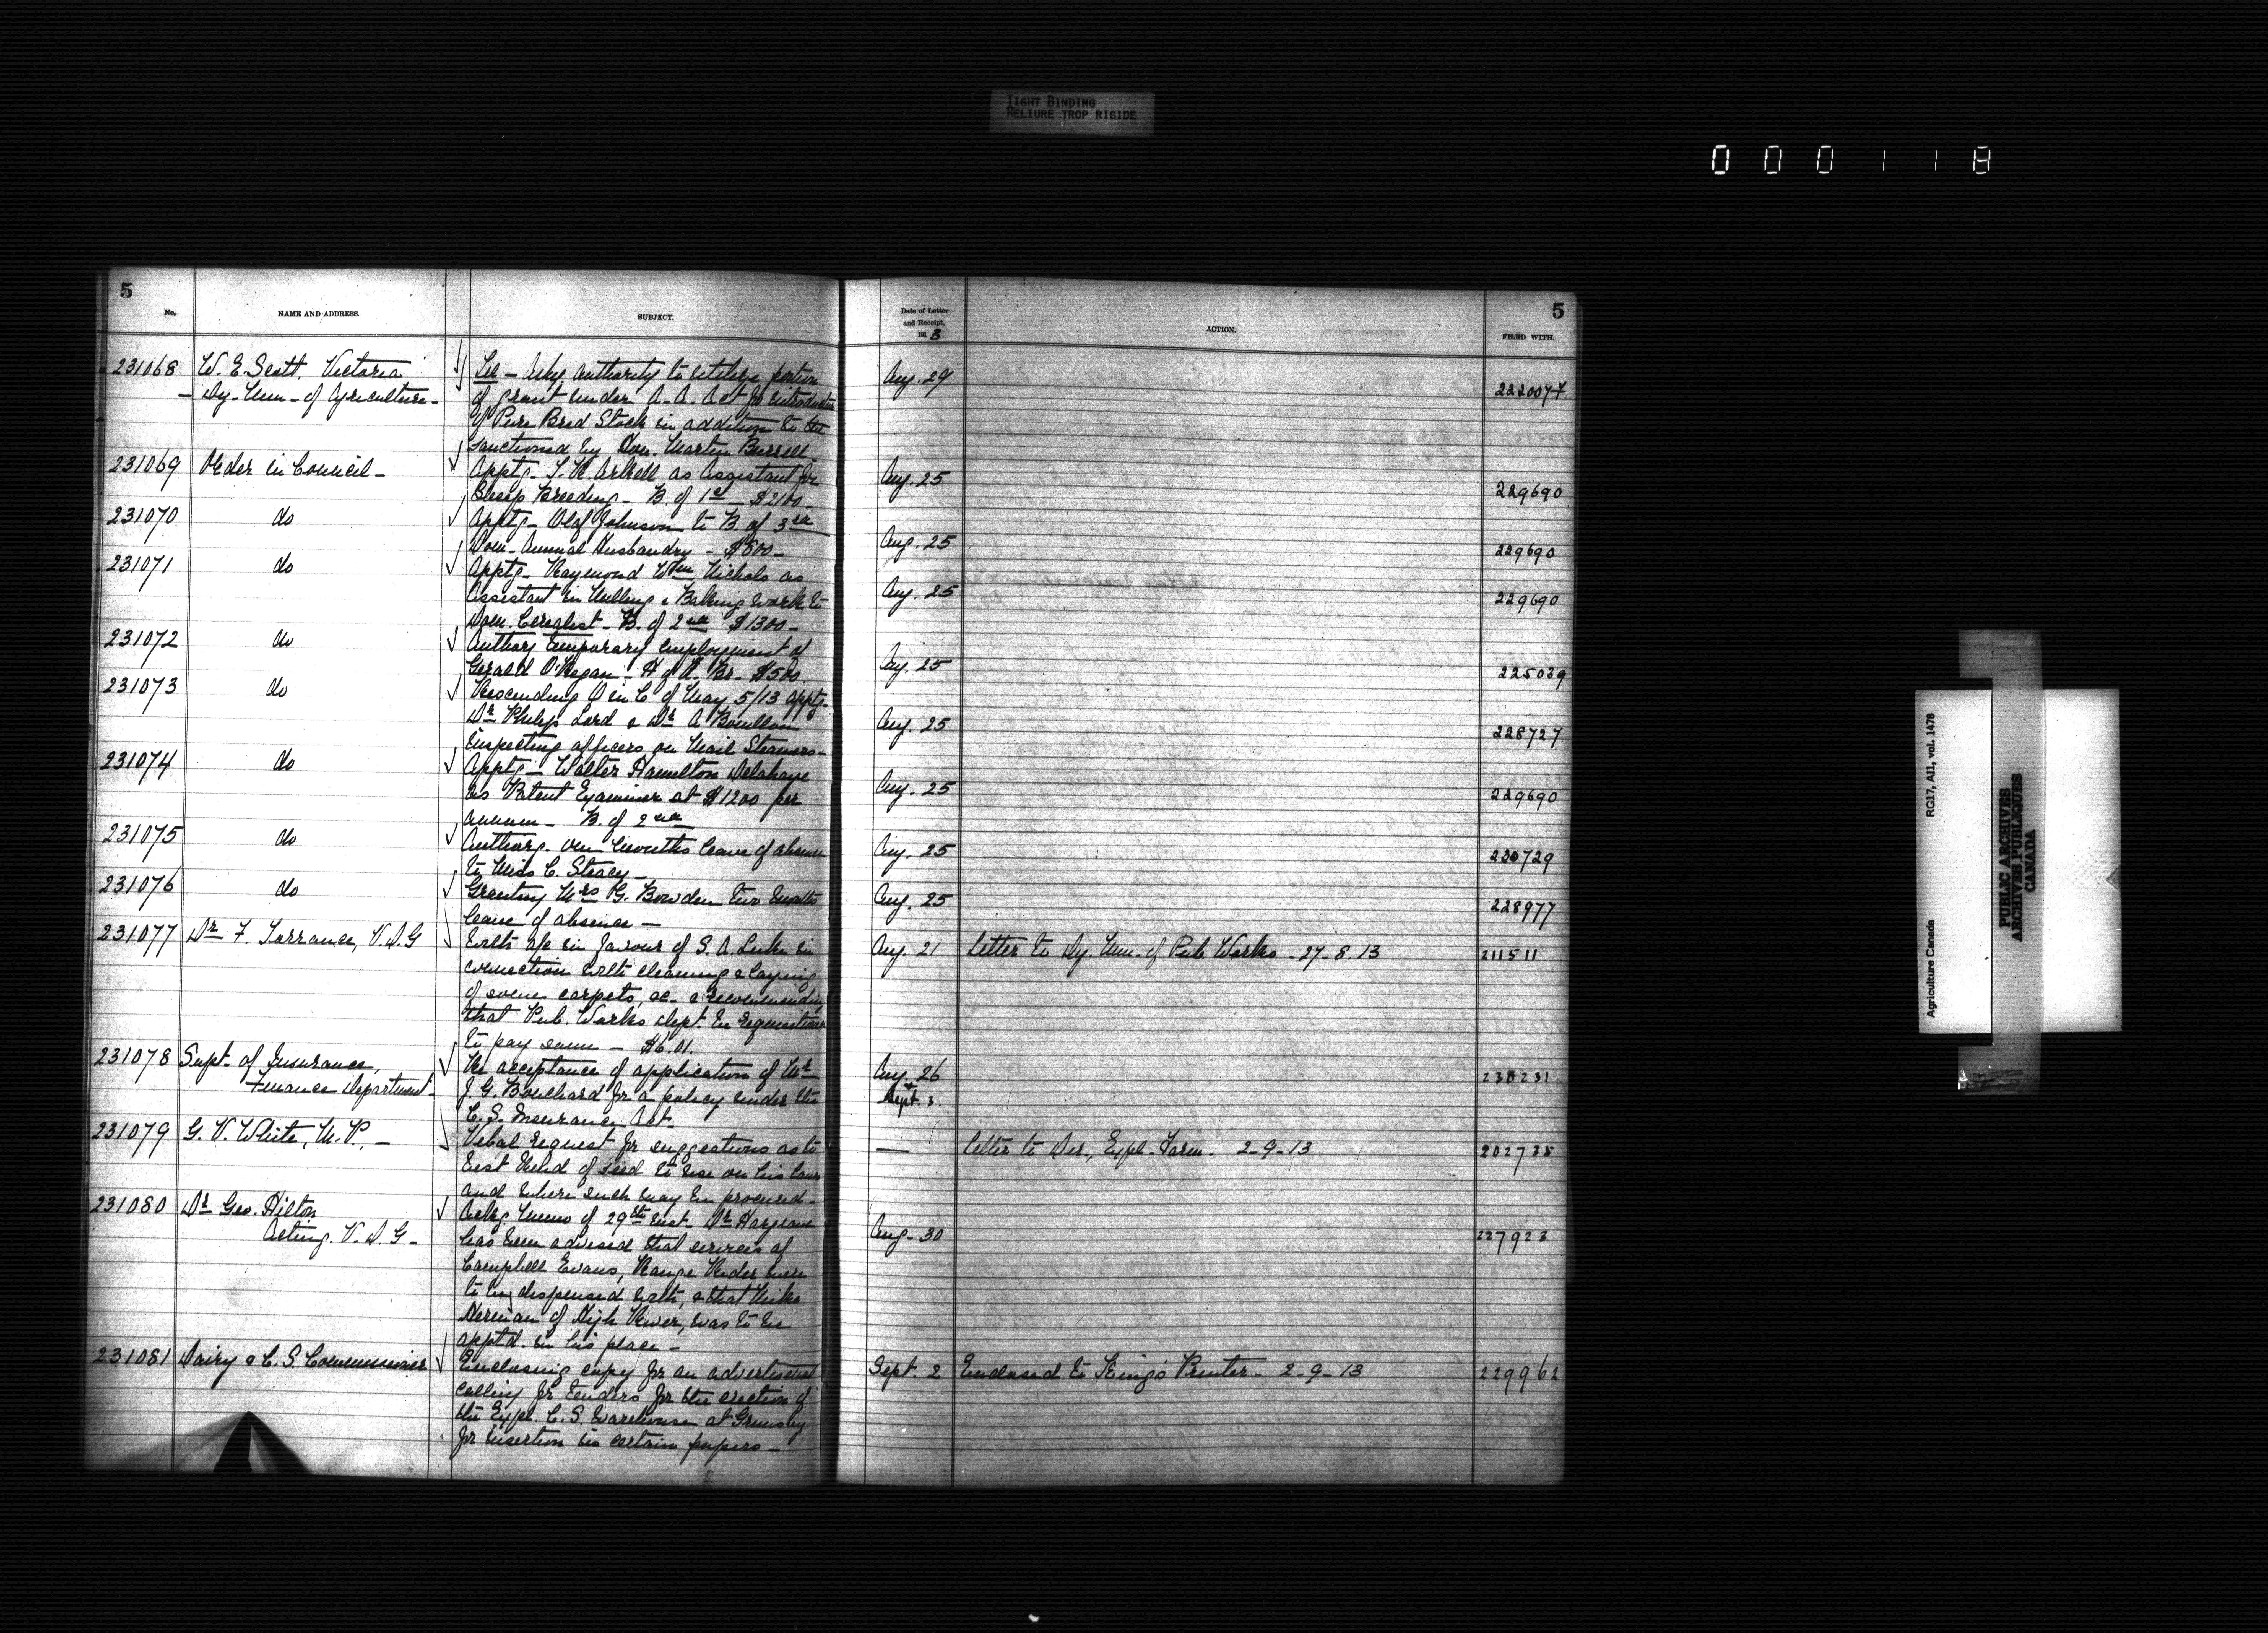 TIGHT BINDING
RELIURE TROP RIGIDE
000118
5
No. NAME AND ADDRESS. SUBJECT.
231068 W. E. Scott, Victoria Tel - Asks authority to utilize portion
Dy. Min. of Agriculture - of grant under A. A. Act for introduction
of Pure Bred Stock in addition to
sanctioned by Hon. Martin Burrell -
231069 Order in Council - Apptg. T. R. Arkell as Assistant for
Sheep Breeding - B. of 1st $2100 -
231070 do Apptg - Olof Johnson to B. of 3rd
Dom. Animal Husbandry - $800 -
231071 do Apptg - Raymond Wm Nichols as
Assistant in Milling & Baking work to
Dom. Cerealist - B. of 2nd $1300 -
231072 do Authorg temporary employment of
Gerald O'Regan - H of A. Br. $500.
231073 do Rescinding O in C of May 5/13 apptg.
Dr Philip Lord & Dr A Bouillon
inspecting officers on Mail Steamers -
231074 do Apptg - Walter Hamilton Delahaye
as Patent Examiner at $1200 per
annum - B. of 2nd
231075 do Authorg. one months leave of absence
to Miss C. Steacy -
231076 do Granting Mrs G. Bowden two months
leave of absence -
231077 Dr F. Torrance, V.D.G With a/c in favour of S. A. Luke in
connection with cleaning & laying
of some carpets, &c - & recommending
that Pub. Works Dept. be requisitioned
to pay same - $6.01.
231078 Supt. of Insurance, Re acceptance of application of Mr
Finance Department - J. G. Bouchard for a policy under the
C. S. Insurance Act.
231079 G. V. White, M.P. - Vebal request for suggestions as to
best kind of seed to use on his lawn
and where such may be procured -
231080 Dr Geo. Hilton Ackg memo of 29th inst. Dr Hargrave
Acting V. D. G - has been advised that services of
Campbell Evans, Range Rider were
to be dispensed with, & that Mike
Herman of High River, was to be
apptd. in his place -
231081 Dairy & C. S. Commissioner Enclosing copy for an advertisement
calling for tenders for the erection of
the Expl. C. S. Warehouse at Grimsby
for insertion in certain papers -
5
Date of Letter
and Receipt,
1913 ACTION. FILED WITH.
Aug. 29 222007
Aug. 25 229690
Aug. 25 229690
Aug. 25 229690
Aug. 25 225039
Aug. 25 228727
Aug. 25 229690
Aug. 25 230729
Aug. 25 228977
Aug. 21 Letter to Dy. Min. of Pub. Works - 27-8-13 211511
Aug. 26
Sept.
— Letter to Dir., Expl. Farm. 2-9-13
Aug. 30 227923
Sept. 2 Enclosed to King's Printer - 2-9-13 229962
Agriculture Canada RG17, AII, vol. 1478
PUBLIC ARCHIVES
ARCHIVES PUBLIQUES
CANADA